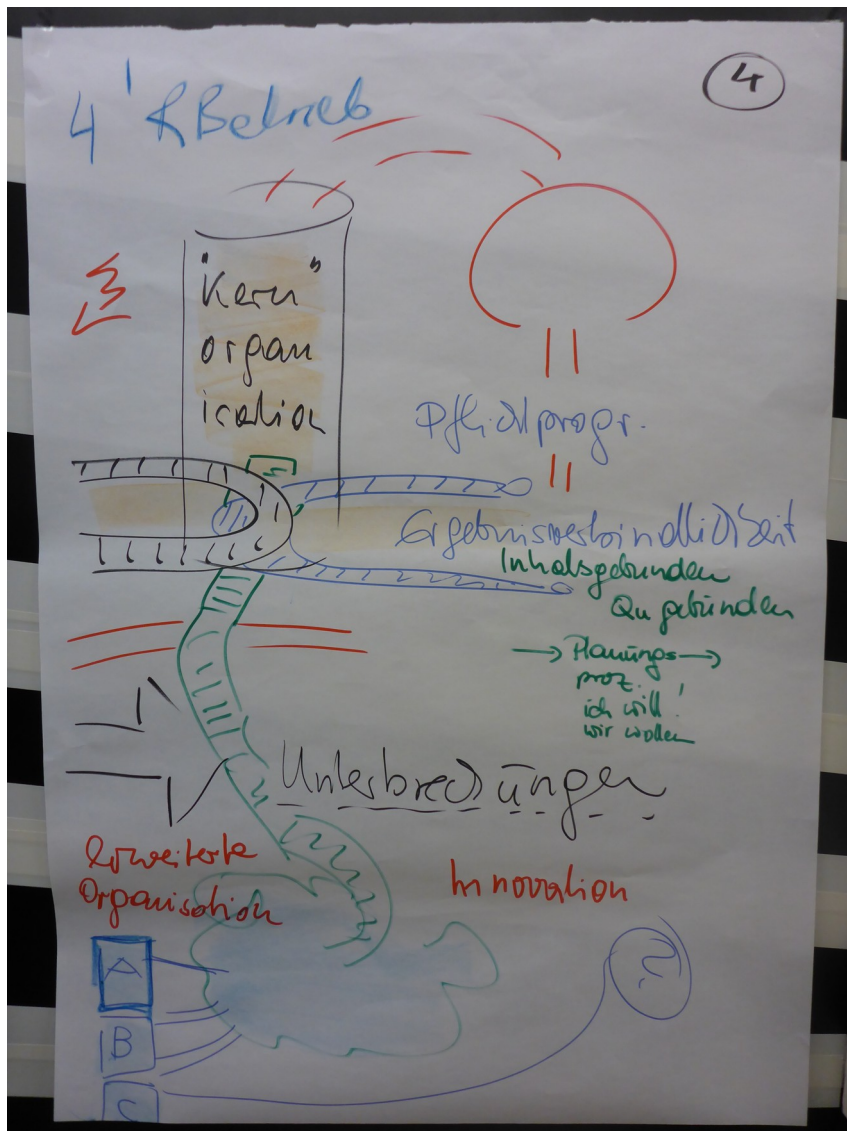 4
4' RBetrieb
"Kern"
organ
isation
Pflichtprogr.
Ergebnisverbindlichkeit
Inhaltsgebunden
Qu gebunden
→ Planungs →
proz.
ich will!
wir wollen
Unterbrechungen
Erweiterte
Organisation
Innovation
A
B
C
?